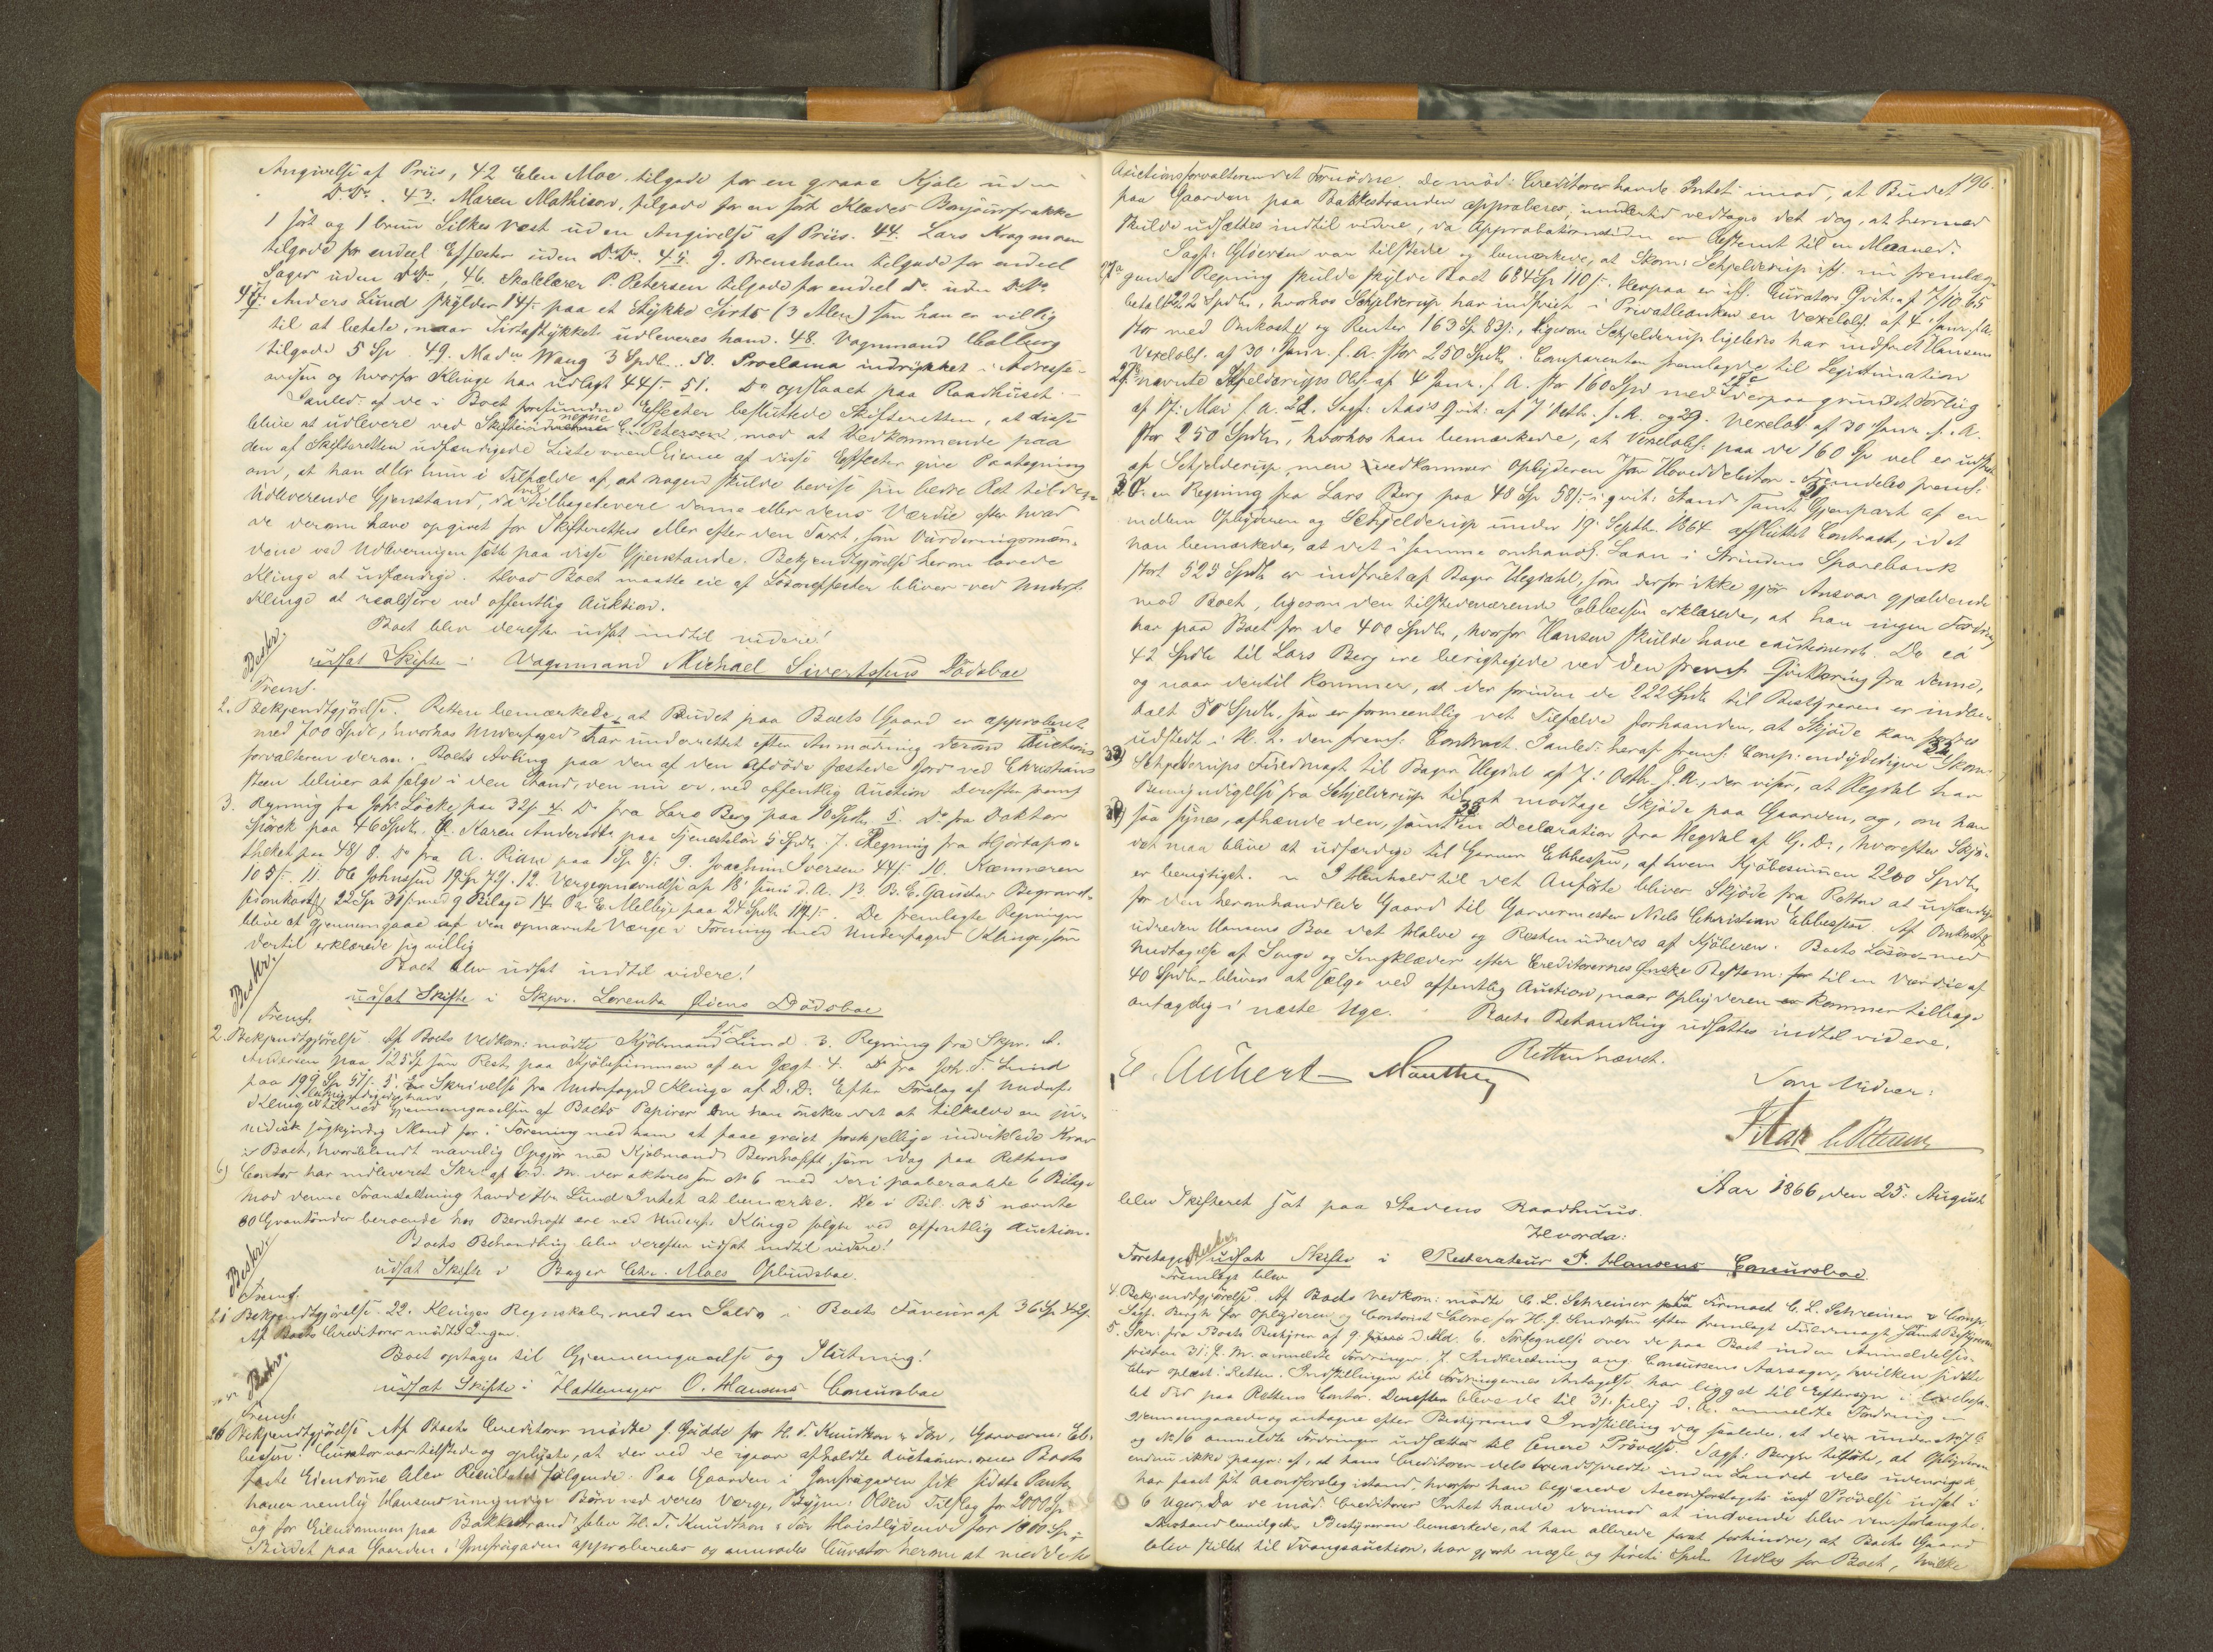 Angivelse af Priis, 42 Elen Moe tilgode for en graae Kjole uden
D: Do. 43. Maren Mathison, tilgode for en sort Klædes Bonjourfrakke
1 sort og 1 bruun Silkes Vest uden Angivelse af Priis. 44. Lars Kragmoen
tilgode for endeel Effecter uden D: Do. 45. J. Brensholm tilgode for endeel
Sager uden Do Do, 46. Skolelærer P. Petersen tilgode for endeel Do uden D. Do.
47. Anders Lund skylder 14 s. paa et Stykke Sirts (3 Alen) som han er villig
til at betale, naar Sirtsstykket udleveres ham. 48. Vognmand Colberg
tilgode 5 Sp. 49. Madm Waug 3 Spdl. 50. Proclama indrykket i Adresse-
avisen og hvorfor Klinge har udlagt 44 s. 51. Do opslaaet paa Raadhuset. -
Januled: af de i Boet forefundne Effecter besluttede Skifteretten, at disse
blive at udlevere ved Skifte E. Petersen, mod at Vedkommende paa
den af Skifteretten udfærdigede Liste over Eierne af disse Effecter give Paategning
om, at han eller hun i Tilfælde af, at nogen skulde bevise sin bedre Ret til den
Udleverende Gjenstand, da tilbagelevere denne eller dens Værdie efter hvad
de derom have opgivet for Skifteretten eller efter den Taxt, som Vurderingsmæn-
dene ved Udleveringen sætte paa disse Gjenstande. Bekjendtgjørelse herom lovede
Klinge at udfærdige. Hvad Boet maatte eie af Løsøreeffecter bliver ved Underf.
Klinge at realisere ved offentlig Auktion.
Boet blev derefter udsat indtil videre!
Beskr.
udsat Skifte i Vognmand Michael Sivertsens Dødsboe
Freml.
2. Bekjendtgjørelse. Retten bemærkede, at Budet paa Boets Gaard er approberet
med 700 Spdl, hvorhos Underfoged har underrettet efter Anmodning derom Auctions
forvalteren derom. Boets Avling paa den af den Afdøde fæstede Jord ved Christians
steen bliver at sælge i den Stand, den nu er, ved offentlig Auction. Derefter freml
3. Regning fra Joh: Løcke paa 32 s. 4. Do fra Lars Berg paa 10 Spdl. 5. Do fra Doktor
Spørck paa 46 Spdl. 6. Karen Andersdtr paa Tjenesteløn 5 Spdl. 7. Regning fra Hjorteapo-
theket paa 48 s 8. Do fra A. Rian paa 1 Sp 8 s. 9. Joachim Iversen 44 s. 10. Kæmneren
105 s. 11. Ole Johnsen 19 Sp 72 s. 12. Værgeopnævnelse af 18' Juni d. A. 13. B. E. Gaustas Begravel-
sesomkostn 22 Sp 31 s. med 9 Bilage 14. Paa E. Mellbye paa 24 Spdl 112 s. De fremlagte Regninger
blive at gjennemgaae af den opnævnte Værge i Forening med Underfoged Klinge, som
dertil erklærede sig villig
Boet blev udsat indtil videre!
Beskr.
udsat Skifte i Skpr. Lorents Øiens Dødsboe
Freml.
2. Bekjendtgjørelse. Af Boets Vedkom: mødte Kjøbmand Lund. 3. Regning fra Skpr. A.
Andersen paa 125 Sp som Rest paa Kjøbesummen af en Jægt. 4. Do fra Joh. S. Lund
paa 199 Sp 51 s. 5. Skrivelse fra Underfoged Klinge af D. D. Efter Forslag af Underf.
Klinge ved Gjennemgaaelsen af Boets Papirer om han ønsker det at tilkalde en ju-
ridisk sagkyndig Mand for i Forening med ham at faae greiet forskjellige indviklede Krav
i Boet, hvoriblandt navnlig Opgjør med Kjøbmand Bernhoft, som idag paa Rettens
6) Contor har indleveret Skr: af 6 d. M. der aktores som No 6 med deri paaberaabte 6 Bilage
Mod denne Foranstaltning havde Hr Lund Intet at bemærke. De i Bil. No 5 nævnte
80 Grantønder beroende hos Bernhoft ere ved Underf. Klinge solgte ved offentlig Auction.
Boets Behandling blev derefter udsat indtil videre!
Beskr.
udsat Skifte i Bager Chr. Moes Opbudsboe.
Freml.
21 Bekjendtgjørelse. 22. Klinges Regnskab med en Saldo i Boets Faveur af 36 Sp 42 s.
Af Boets Creditorer mødte Ingen.
Boet optages til Gjennemgaaelse og Slutning!
Beskr.
udsat Skifte i Hattemager O. Hansens Concursboe
Freml.
26 Bekjendtgjørelse Af Boets Creditorer mødte J. Gudde for H. T. Knudtzon & Søn, Garverm: Eb-
besen. Curator var tilstede og oplyste, at der ved de igaar afholdte Auctioner over Boets
faste Eiendomme blev Resultatet følgende: Paa Gaarden i Jomfrugaden fik sidste Pant-
haver nemlig Hansens umyndige Børn ved deres Værge, Bygm: Olsen Tilslag for 2000 Sp
og for Eiendommen paa Bakkestrand blev H. T. Knudtzon & Søn Høistbydende for 1000 Sp -
Budet paa Gaarden i Jomfrugaden approberedes og anmodes Curator herom at meddele
196.
Auctionsforvalteren det Fornødne. De mød: Creditorer havde Intet imod, at Budet
paa Gaarden paa Bakkestranden approberes, imidlertid vedtages det dog, at hermed
skulde udsættes indtil videre, da Approbationstiden er bestemt til en Maaned.
Sagf: var tilstede og bemærkede, at Skom: Schjelderup iflg. nu fremlæg-
27a gende Regning skulde skylde Boet 684 Sp 110 s. Herpaa er iflg. Curators Qvit: af 7/10 65
betalt 222 Spdl, hvorhos Schjelderup har indfriet i Privatbanken en Vexelobl. af 4' Janr. f. A.
stor med Omkostn og Renter 163 Sp 83 s., ligesom Schjelderup ligeledes har indfriet Hansens
Vexelobl. af 30' Janr. f. A. stor 250 Spdl. Comparenten fremlagde til Legitimation
27b nævnte Schjelderups Obl: af 4 Janr. f. A. for 160 Spd med derpaa grundet Forlig
af 17. Mai f. A. 28. Sagf: Aas's Qvit: af 7' Octb. f. A. og 29. Vexelobl af 30' Janr. f. A.
stor 250 Spdl, hvorhos han bemærkede, at Vexelobl. paa de 160 Sp vel er udstedt
af Schjelderup men vedkommer Opbyderen som Hoveddebitor. Fremdeles freml:
30. en Regning fra Lars Berg paa 48 Sp 58 s. i qvit: Stand samt 31 Gjenpart af en
mellem Opbyderen og Schjelderup under 19' Septb. 1864 afsluttet Contract, idet
han bemærkede, at det i samme omhandl. Laan i Strindens Sparebank
stort 525 Spdl er indfriet af Bager Hegdahl, som derfor ikke gjør Ansvar gjældende
mod Boet, ligesom den tilstedeværende Ebbesen erklærede, at han ingen Fordring
har paa Boet for de 400 Spdl, hvorfor Hansen skulde have cautioneret. De ca
42 Spdl til Lars Berg ere berigtigede ved den freml. Qvittering fra denne,
og naar dertil kommer, at der foruden de 222 Spdl til Bestyreren er indbe-
talt 50 Spdl, saa er formeentlig det Tilfælde forhaanden, at Skjøde kan
udstedt i H. t. den freml: Contract. Januled: heraf freml: Comp: endydeligere Skom:
32) Schjelderups Fuldmagt til Bager Hegdal af 7' Octb. f. A., der viser, at Hegdal har
Bemyndigelse fra Schjelderup til at modtage Skjøde paa Gaarden, og, om han
33) saa synes, afhænde den, samt en Declaration fra Hegdal af G. D., hvorefter Skjø-
det maa blive at udfærdige til Garver Ebbesen, af hvem Kjøbesummen 2200 Spdl
er berigtiget. - I Henhold til det Anførte bliver Skjøde fra Retten at udfærdige
for den heromhandlede Gaard til Garvermester Niels Christian Ebbesen. Af Omkostn
udreder Hansens Boe det Halve og Resten udredes af Kjøberen. Boets Løsøre med
Undtagelse af Senge og Sengklæder efter Creditorernes Ønske Bestem: til en Værdie af
40 Spdl bliver at sælge ved offentlig Auction, naar Opbyderen kommer tilbage
antagelig i næste Uge. - Boets Behandling udsættes indtil videre.
Retten hævet.
E. Aubert Mauthey
Som Vidner:
Aar 1866, den 25: August
blev Skifteret sat paa Stadens Raadhuus.
Hvorda:
Foretages udsat Skifte i Restorateur P. Hansens Concursboe.
Fremlagt blev
4. Bekjendtgjørelse. Af Boets Vedkom: mødte C. L. Schreiner for Firmaet C. L. Schreiner & Comp,
Sagf. Bergh for Opbyderen og Contorist Salme for H. J. efter fremlagt Fuldmagt samt Bestyreren
5. Skr. fra Boets Bestyrer af 9. d. Md. 6. Fortegnelse over de paa Boet inden Anmeldelses-
fristen 31. f. M. anmeldte Fordringer. 7. Indberetning ang. Concursens Aarsager, hvilken sidste
blev oplæst i Retten. Indstillingen til Fordringernes Antagelse har ligget til Eftersyn i lovbefa-
let Tid paa Rettens Contor. Derefter bleve de til 31. July d. A. anmeldte Fordringer
gjennemgaaede og antagne efter Bestyrerens Indstilling dog saaledes, at de under No 7, 8
og No 16 anmeldte Fordringer udsættes til senere Prøvelse. Sagf: Bergh tilførte, at Opbyderen
endnu ikke paagr: af, at hans Creditorer dels ere adspredte inden Landet dels udenrigsk,
har faaet sit Accordforslag istand, hvorfor han begjerede Accordforslagets Prøvelse udsat i
6 Uger. Da de mød. Creditorer Intet havde derimod at indvende blev den forlangte
Anstand bevilget. Bestyreren bemærkede, at han allerede først forhindre, at Boets Gaard
blev stillet til Tvangsauction, har gjort nogle og tredive Spdlr Udlæg for Boet, hvilke